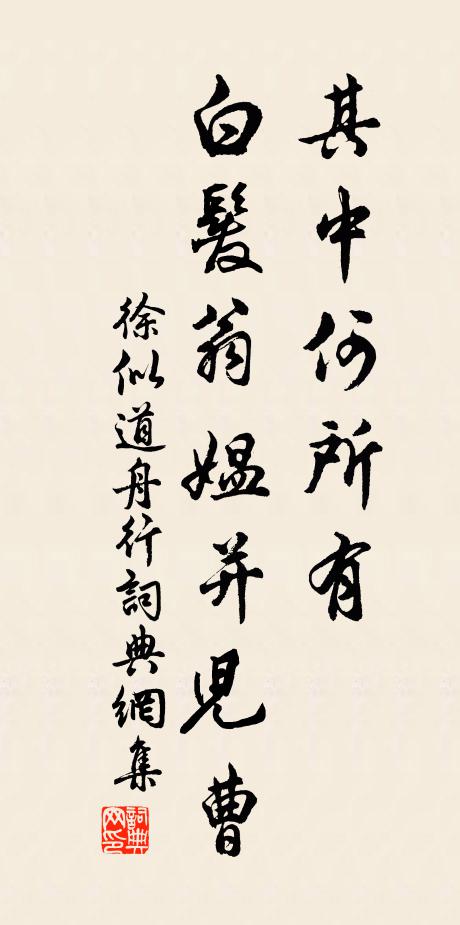 其中何所有
白髮翁媼并兒曹
徐似道舟行詞典網集
詞典网印